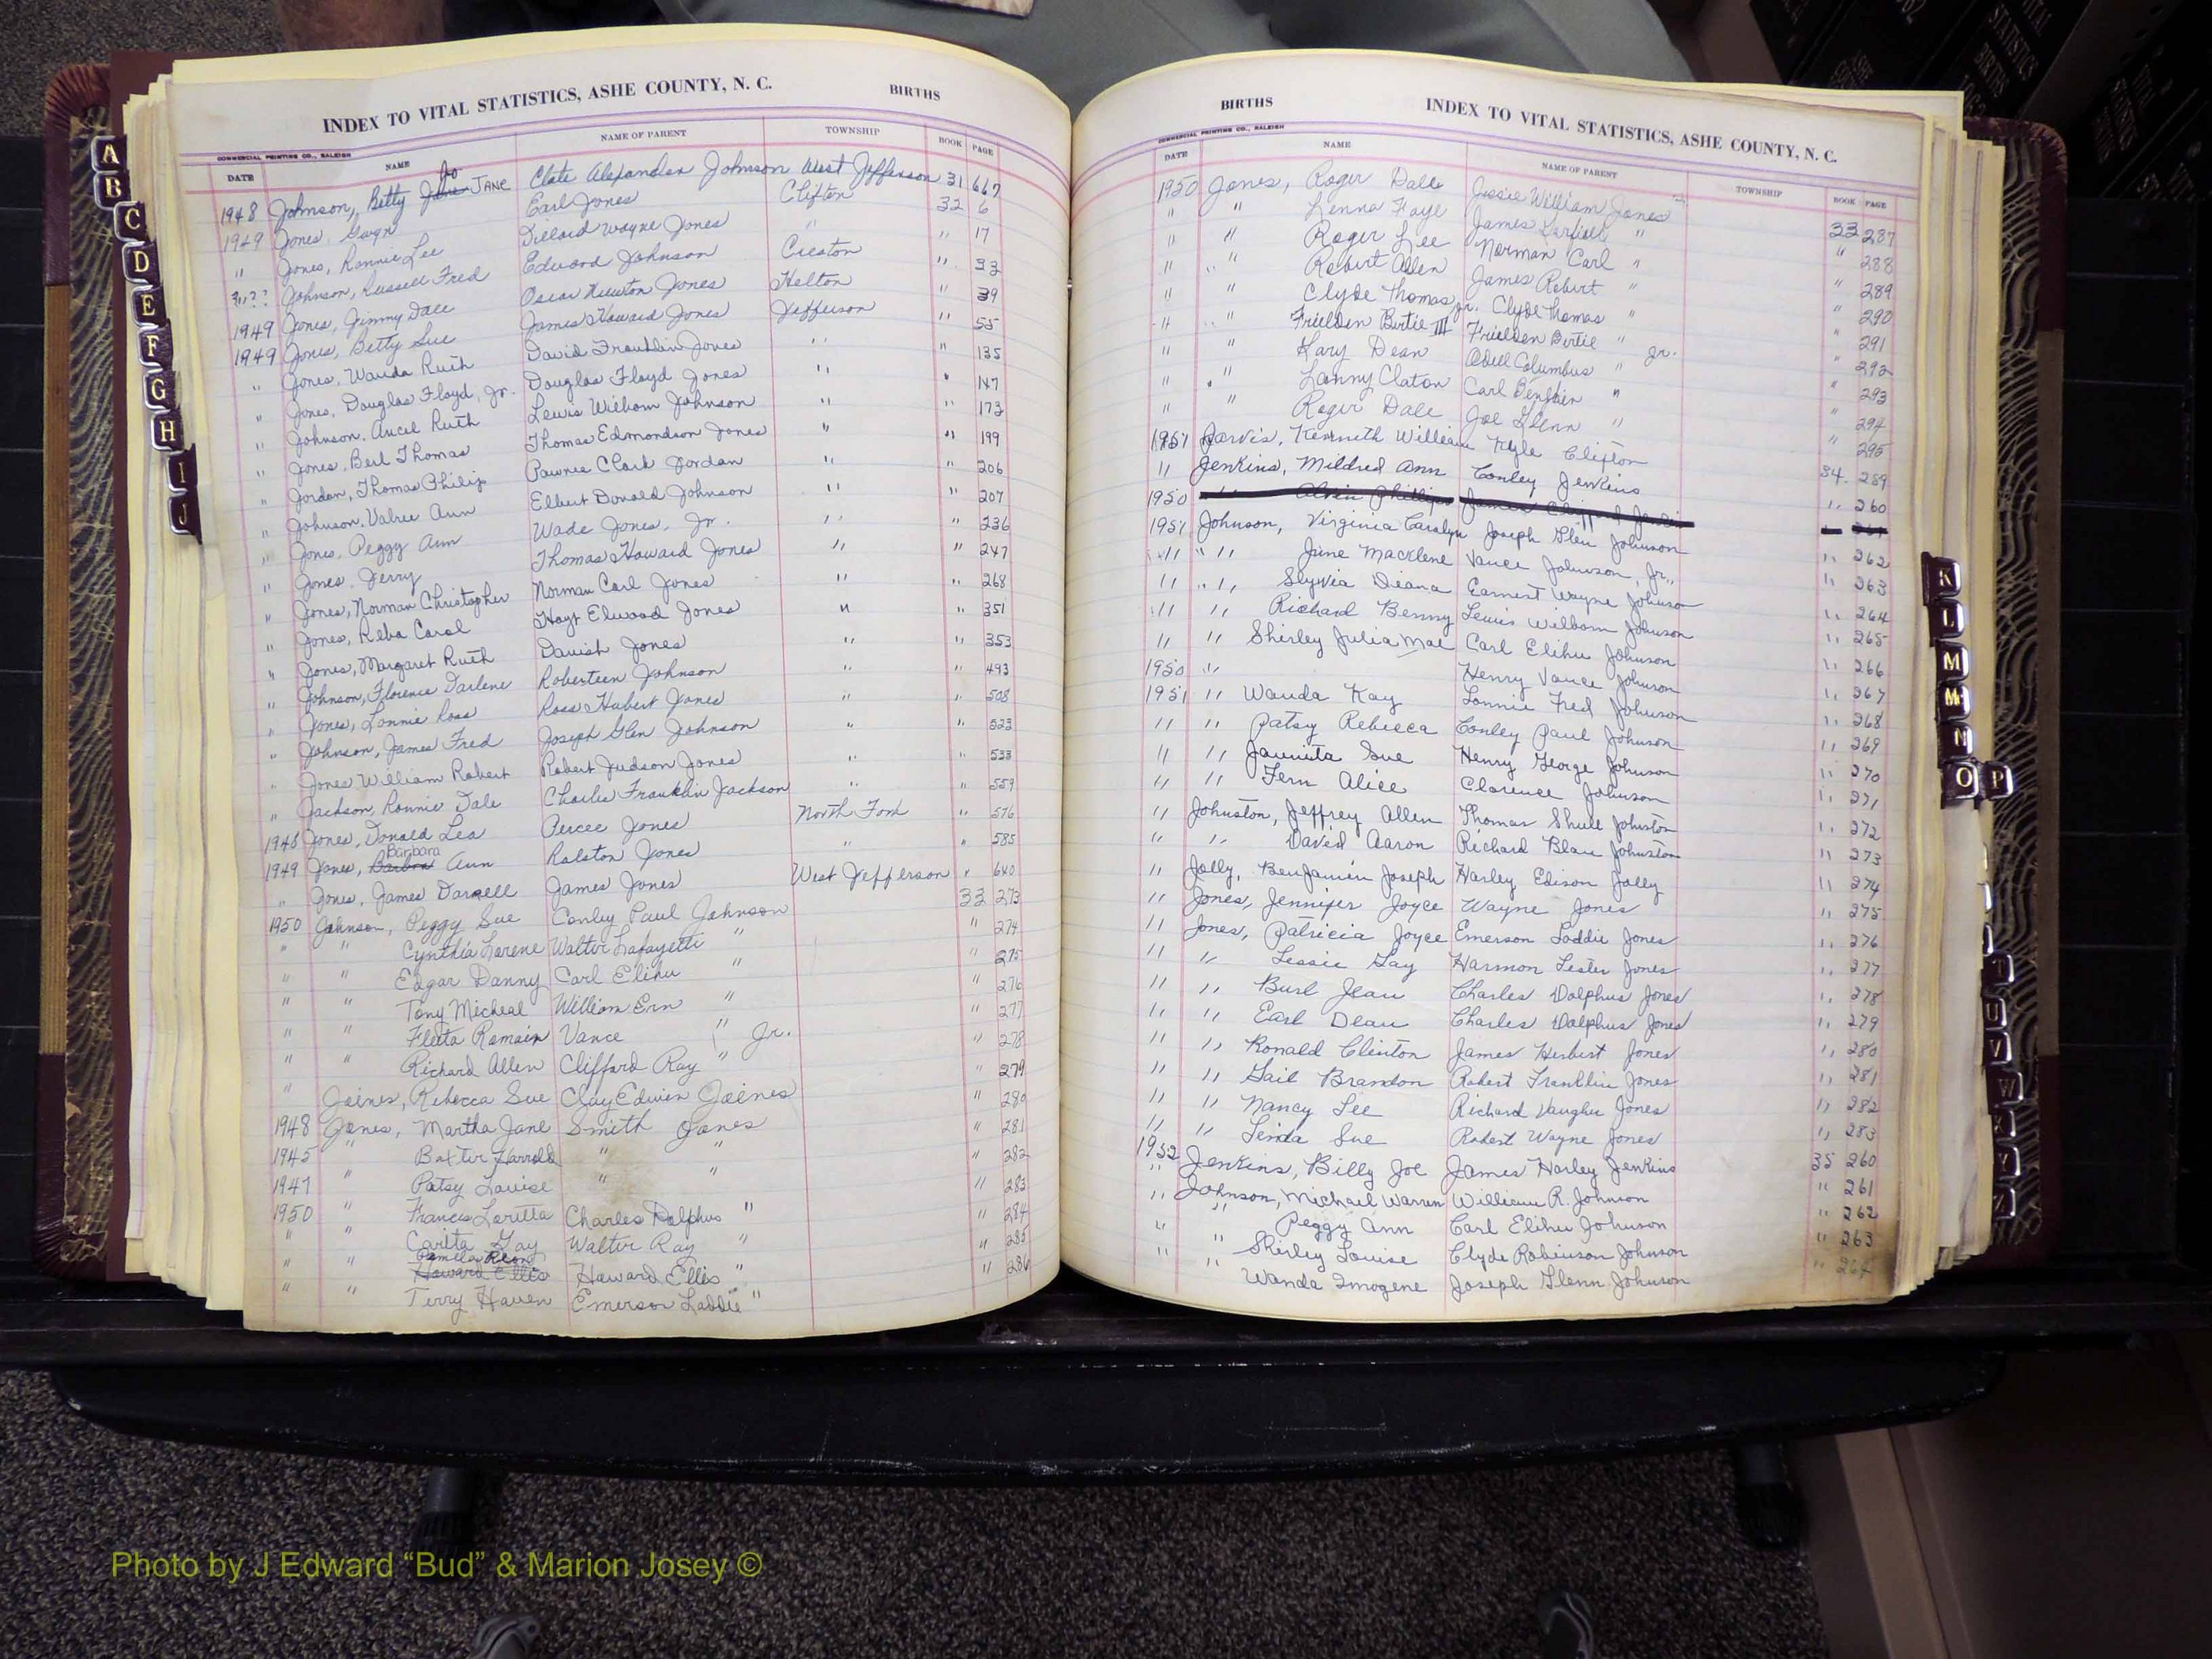 INDEX TO VITAL STATISTICS, ASHE COUNTY, N. C. BIRTHS
COMMERCIAL PRINTING CO., RALEIGH
DATE NAME NAME OF PARENT TOWNSHIP BOOK PAGE
1948 Johnson, Betty Jo JANE Clate Alexander Johnson West Jefferson 31 667
1949 Jones, Earl Jones Clifton 32 6
" Jones, Ronnie Lee Dillard Wayne Jones " " 17
?"?? Johnson, Russell Fred Edward Johnson Creston " 33
1949 Jones, Jimmy Dale Oscar Newton Jones Helton " 39
1949 Jones, Betty Sue James Howard Jones Jefferson " 55
" Jones, Wanda Ruth David Franklin Jones " " 135
" Jones, Douglas Floyd, Jr. Douglas Floyd Jones " " 147
" Johnson, Ancel Ruth Lewis William Johnson " " 173
" Jones, Bert Thomas Thomas Edmondson Jones " " 199
" Jordan, Thomas Philip Pawnee Clark Jordan " " 206
" Johnson, Valree Ann Elbert Donald Johnson " " 207
" Jones, Peggy Ann Wade Jones, Jr. " " 236
" Jones, Jerry Thomas Howard Jones " " 247
" Jones, Norman Christopher Norman Carl Jones " " 268
" Jones, Reba Carol Hoyt Elwood Jones " " 351
" Jones, Margaret Ruth Jones " " 353
" Johnson, Florence Darlene Roberteen Johnson " " 493
" Jones, Lonnie Ross Ross Hubert Jones " " 508
" Johnson, James Fred Joseph Glen Johnson " " 523
" Jones William Robert Robert Judson Jones " " 533
" Jackson, Ronnie Dale Charles Franklin Jackson " " 559
1948 Jones, Donald Lea Percee Jones North Fork " 576
1949 Jones, Barbara Ann Ralston Jones " " 585
" Jones, James Darnell James Jones West Jefferson " 640
1950 Johnson, Peggy Sue Conley Paul Johnson 33 273
" " Cynthia Larene Walter Lafayette " " 274
" " Edgar Danny Carl Elihu " " 275
" " Tony Micheal William Ern " " 276
" " Romain Vance " Jr. " 277
" " Richard Allen Clifford Ray " " 278
" Joines, Rebecca Sue Clay Edwin Joines " 279
1948 Jones, Martha Jane Smith Jones " 280
1945 " Baxter Harrold " " 281
1947 " Patsy Louise " " " 282
1950 " Francis Loretta Charles Dolphus " " 283
" " Carlta Gay Walter Ray " " 284
" " Pamela Howard Ellis Howard Ellis " " 285
" " Terry Haven Emerson Laddie " " 286
BIRTHS INDEX TO VITAL STATISTICS, ASHE COUNTY, N. C.
COMMERCIAL PRINTING CO., RALEIGH
DATE NAME NAME OF PARENT TOWNSHIP BOOK PAGE
1950 Jones, Roger Dale Jessie William Jones 33 287
" " Lenna Faye James " " 288
" " Roger Lee Norman Carl " " 289
" " Robert Allen James Robert " " 290
" " Clyde Thomas Jr. Clyde Thomas " " 291
" " Frielden Bertie III Frielden Bertie " Jr. " 292
" " Dean Odell Columbus " " 293
" " Lonny Claton Carl " " 294
" " Roger Dale Joe Glenn " " 295
1951 Jarvis, Kenneth William Kyle Clifton 34 289
" Jenkins, Mildred Ann Conley Jenkins " 260
1950 " Alvin Phillips James Clifford
1951 Johnson, Virginia Carolyn Joseph Glen Johnson " 262
" " June Macklene Vance Johnson, Jr., " 263
" " Slyvia Diana Earnest Wayne Johnson " 264
" " Richard Benny Lewis Wilborn Johnson " 265
" " Shirley Julia Mae Carl Elihu Johnson " 266
1950 " Henry Vance Johnson " 267
1951 " Wanda Kay Lonnie Fred Johnson " 268
" " Patsy Rebecca Conley Paul Johnson " 269
" " Jaunita Sue Henry George Johnson " 270
" " Fern Alice Clarence Johnson " 271
" Johnston, Jeffrey Allen Thomas Shull Johnston " 272
" " David Aaron Richard Blan Johnston " 273
" Jolly, Benjamin Joseph Harley Edison Jolly " 274
" Jones, Jennifer Joyce Wayne Jones " 275
" Jones, Patricia Joyce Emerson Laddie Jones " 276
" " Lessie Gay Harmon Lester Jones " 277
" " Burl Jean Charles Dolphus Jones " 278
" " Earl Dean Charles Dolphus Jones " 279
" " Ronald Clinton James Herbert Jones " 280
" " Gail Brandon Robert Franklin Jones " 281
" " Nancy Lee Richard Vaughn Jones " 282
" " Linda Sue Robert Wayne Jones " 283
1952 Jenkins, Billy Joe James Harley Jenkins 35 260
" Johnson, Michael Warren William R. Johnson " 261
" " Peggy Ann Carl Elihu Johnson " 262
" " Shirley Louise Clyde Robinson Johnson " 263
" " Wanda Imogene Joseph Glenn Johnson " 264
A
B
C
D
E
F
G
H
I
J
K
L
M
Mc
N
O P
T
U
V
W
Y
Photo by J Edward “Bud” & Marion Josey ©